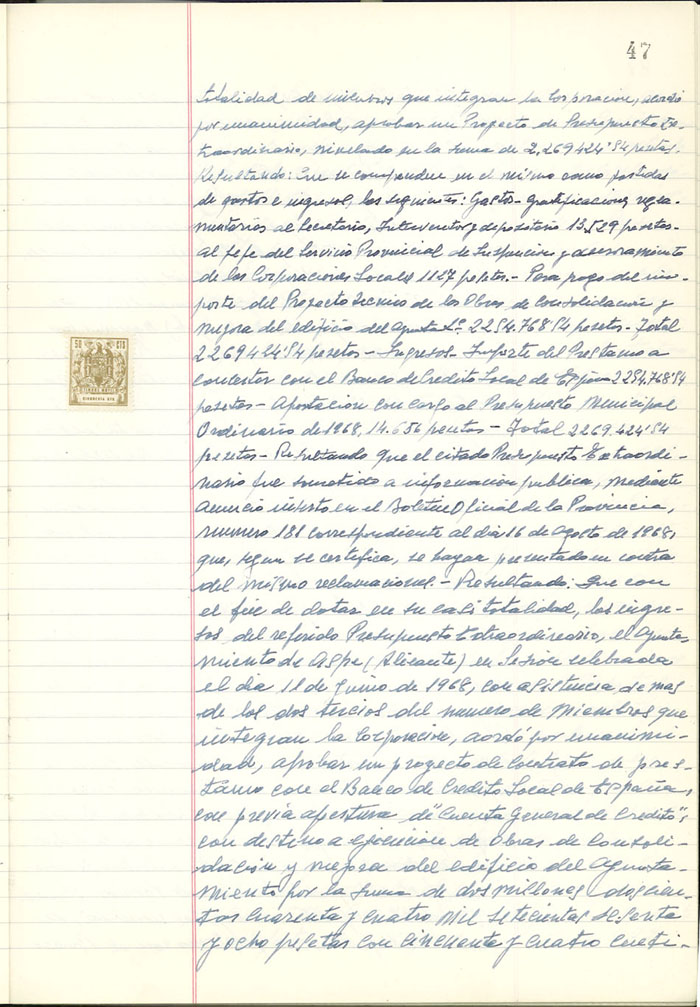 47
totalidad de miembros que integran la Corporación, acordó
por unanimidad, aprobar un Proyecto de Presupuesto Ex-
traordinario, nivelado en la suma de 2.269.424'54 pesetas.
Resultando: Que se comprenden en el mismo como partidas
de gastos e ingresos, las siguientes: Gastos- Gratificaciones regla-
mentarias al Secretario, Interventor y depositario 13.529 pesetas-
al Jefe del Servicio Provincial de Inspección y asesoramiento
de las Corporaciones Locales 1127 pesetas.- Para pago del im-
porte del Proyecto técnico de las Obras de Consolidación y
mejora del edificio del Ayunta Lº 2254.768'54 pesetas- Total
2269424'54 pesetas- Ingresos- Importe del Prestamo a
concertar con el Banco de Credito Local de España 2254.768'54
pesetas- Aportacion con cargo al Presupuesto Municipal
Ordinario de 1968, 14.656 pesetas- Total 2269.424'54
pesetas- Resultando que el citado Presupuesto Extraordi-
nario fue sometido a informacion publica, mediante
anuncio inserto en el Boletin Oficial de la Provincia,
numero 181 correspondiente al dia 16 de Agosto de 1968,
que, segun se certifica, se hayan presentado en contra
del mismo reclamaciones.- Resultando: Que con
el fin de dotar en su casi totalidad, los ingre-
sos del referido Presupuesto Extraordinario, el Ayunta-
miento de Aspe (Alicante) en Sesión celebrada
el dia 11 de Junio de 1968, con asistencia de mas
de los dos tercios del numero de Miembros que
integran la Corporación, acordó por unanimi-
dad, aprobar un proyecto de Contrato de pres-
tamo con el Banco de Credito Local de España,
con previa apertura de "Cuenta General de Credito",
con destino a ejecución de Obras de Consoli-
dación y mejora del edificio del Ayunta-
miento por la suma de dos millones doscien-
tos cuarenta y cuatro mil setecientas sesenta
y ocho pesetas con cincuenta y cuatro centi-
50 CTS